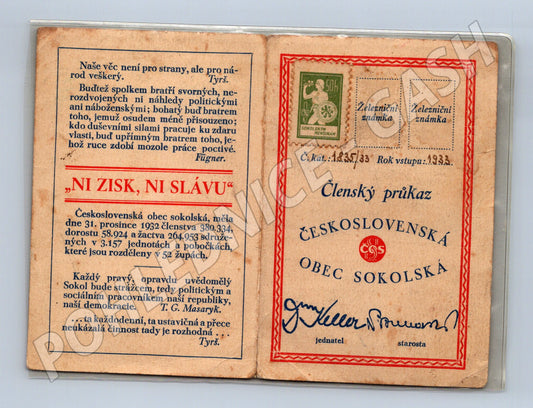 Naše věc není pro strany, ale pro ná-
rod veškerý. Tyrš.
Budtež spolkem bratří svorných, ne-
rozdvojených ni náhledy politickými
ani náboženskými; bohatý buď bratrem
toho, jemuž osudem méně přisouzeno;
kdo duševními silami pracuje ku zdaru
vlasti, buď upřímným bratrem toho, je-
hož ruce zdobí mozole práce poctivé.
Fügner.
„NI ZISK, NI SLÁVU“
Československá obec sokolská, měla
dne 31. prosince 1932 členstva 380.334,
dorostu 58.924 a žactva 264.953 sdruže-
ných v 3.157 jednotách a pobočkách,
které jsou rozděleny v 52 župách.
Každý pravý, opravdu uvědomělý
Sokol bude strážcem, tedy politickým a
sociálním pracovníkem naší republiky,
naší demokracie. T. G. Masaryk.
...ta každodenní, ta ustavičná a přece
neukázalá činnost tady je rozhodná...
Tyrš.
50 h
SOKOLSKÝM
NOVINÁM
Železniční
známka
Železniční
známka
Č. kat. 1235/33 Rok vstupu: 1933
Členský průkaz
ČESKOSLOVENSKÁ
ČOS
OBEC SOKOLSKÁ
Keller
jednatel starosta
POHLEDNICE - CASH